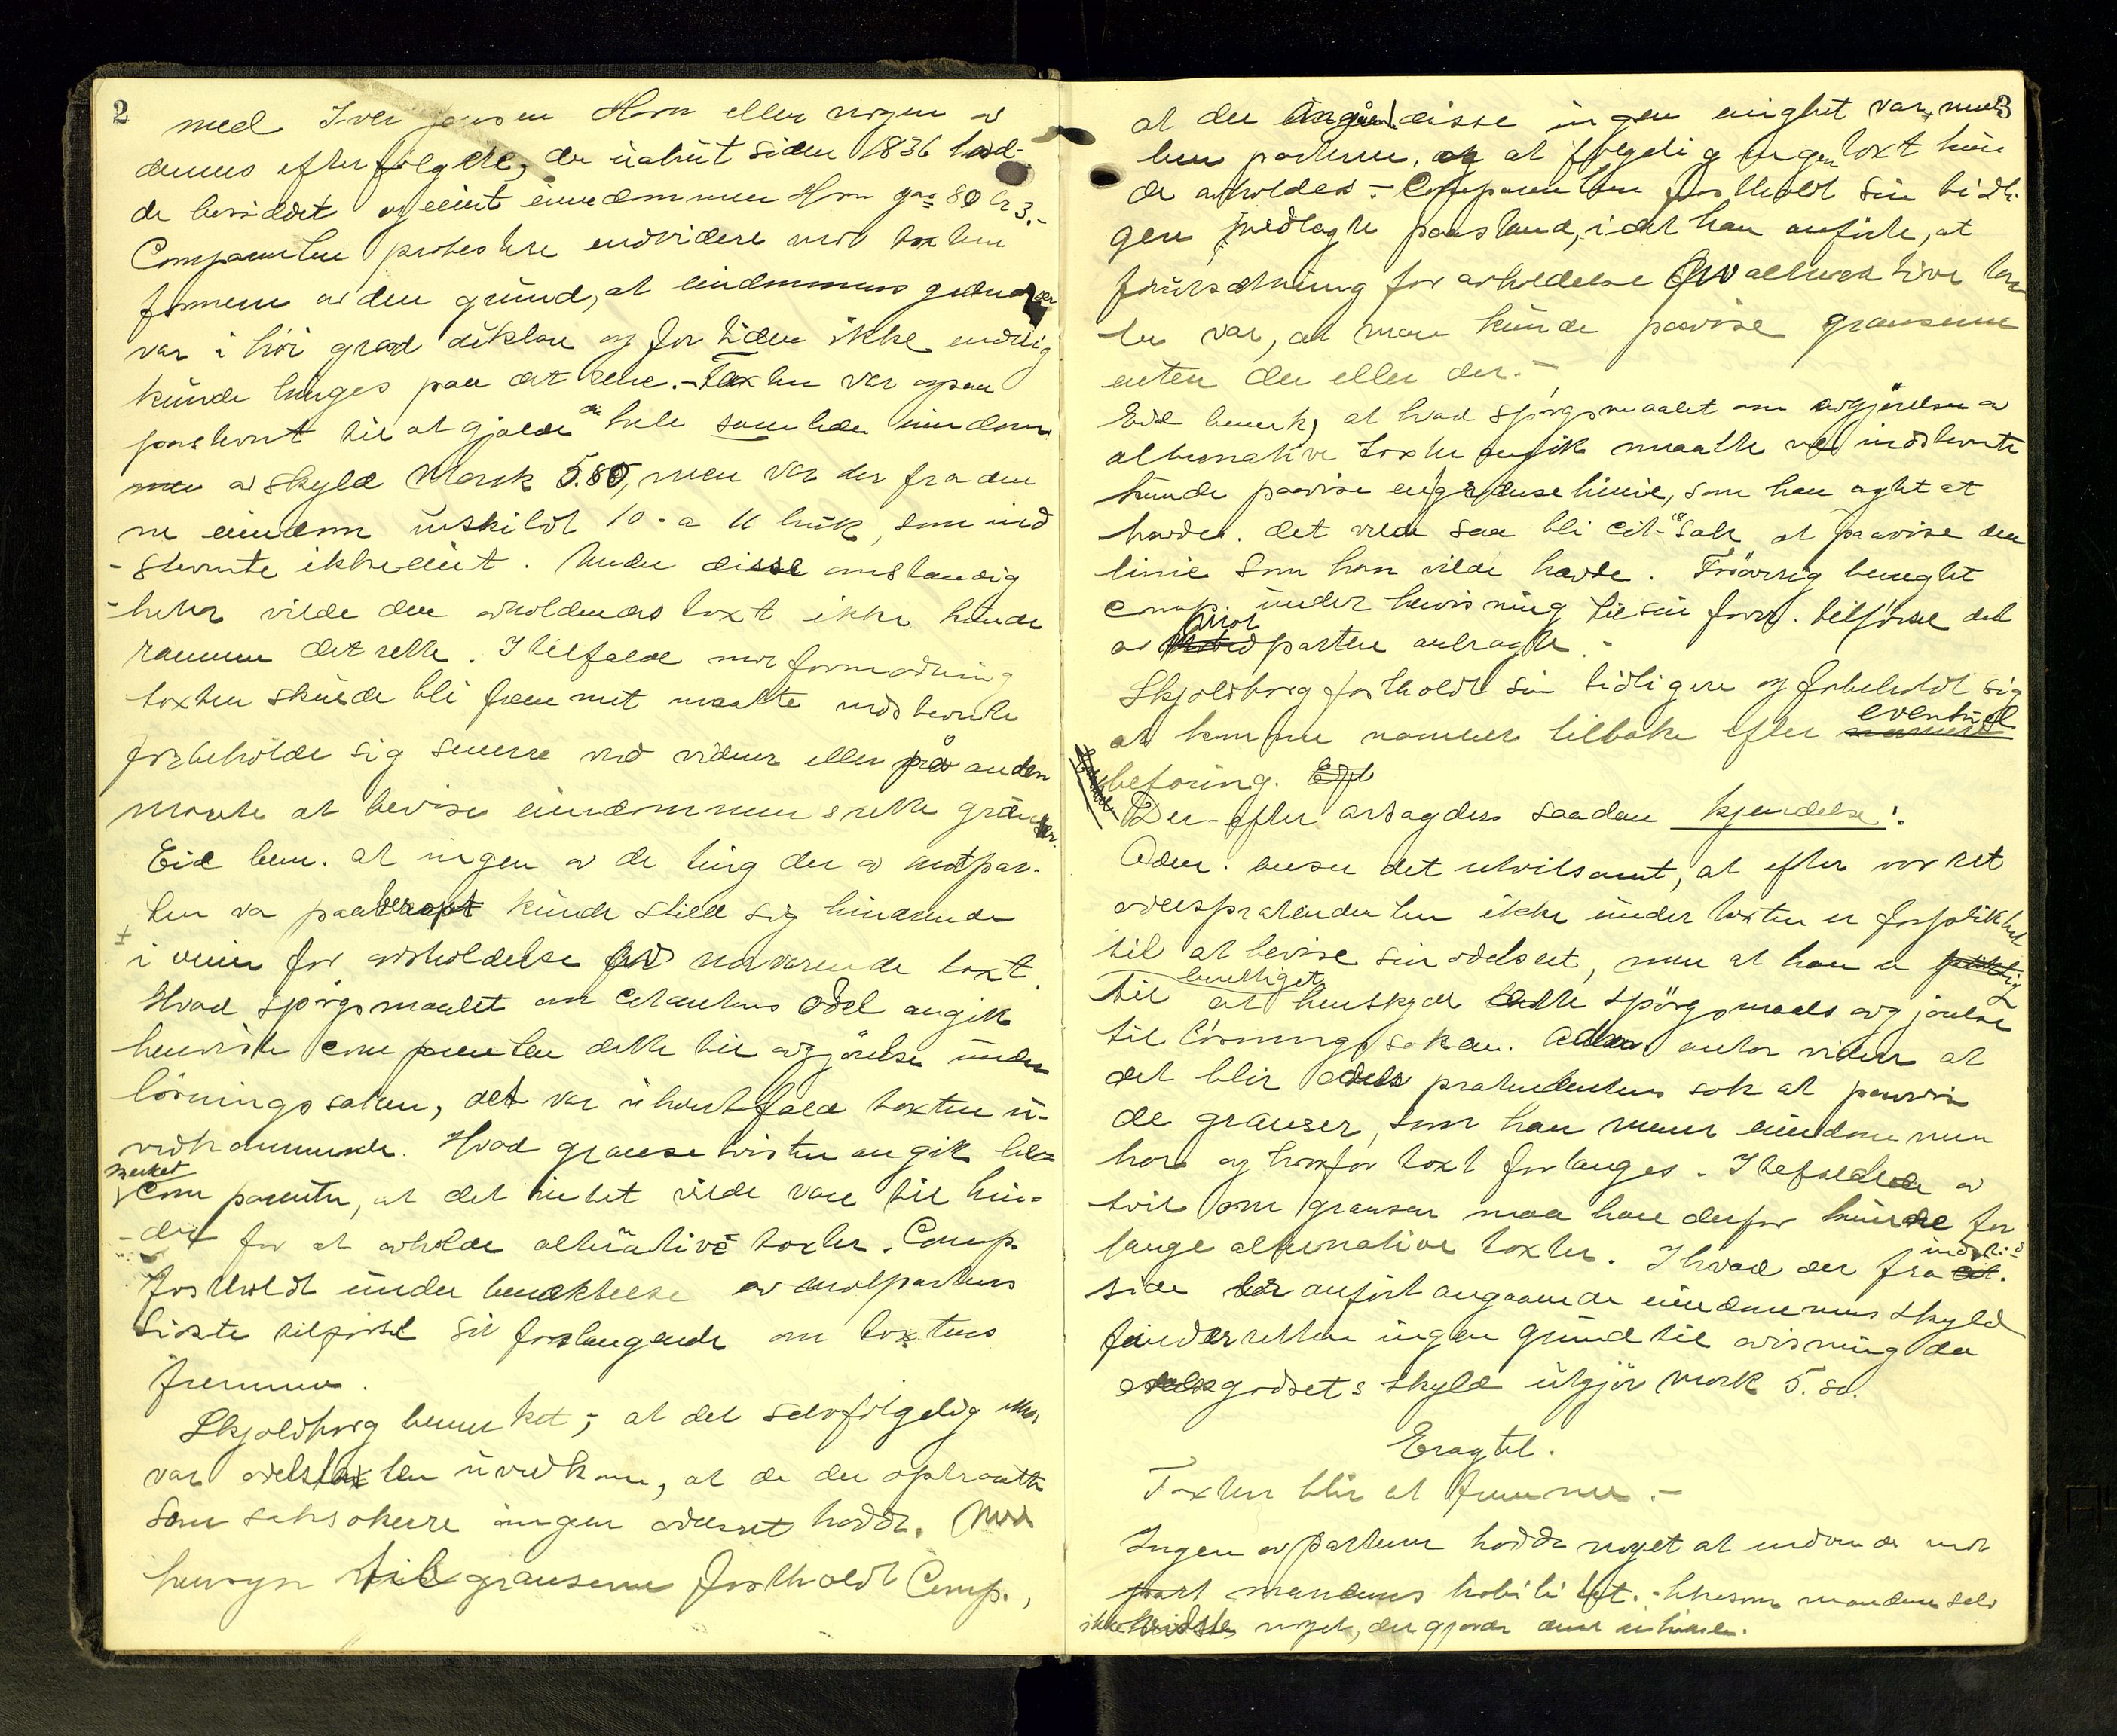 2
med Iver Jensen Horn eller nogen av
dennes efterfølgere, der uavbrut siden 1836 havd-
de besiddet og eiet eiendommen Horn gns 80 br 3.-
Comparenten protesterte endvidere mot taxtens
fremme av den grund, at eiendommens grænser
var i høi grad uklare og for tiden ikke endelig
kunde bringes paa det rene.- Taxten var ogsaa
paastevnt til at gjælde den hele samlede eiendom
av skyld Mark 5.80, men var der fra den
ne eiendom utskildt 10 a 11 bruk, som ind
-stevnte ikke eiet. Under disse omstændig
-heter vilde den avholdendes taxt ikke kunde
ramme det rette. I tilfælde mot formodning
taxten skulde bli fremmet maatte indstevnte
forbeholde sig senere ved vidner eller på anden
maate at bevise eiendommens rette grænser.
Eid bem. at ingen av de ting der av motpar-
ten var paaberopt kunde stille sig hindrende
i veien for avholdelse av nærværende taxt.
Hvad spørgsmaalet om citantens odel angik
henviste comparenten dette til avgjørelse under
løsningssaken, det var i hvertfald taxten u-
vedkommende. Hvad grænsetvisten angik be-
merket
comparenten, at det intet vilde være til hin-
-der for at avholde alternative taxter. Comp.
fastholdt under benektelse av motpartens
sidste tilførsel sit forlangende om taxtens
fremme.
Skjoldborg bemerket; at det selvfølgelig ikke
var odelstaxten uvedkom, at de der optraatte
som saksøkere ingen odelsret hadde. Med
hensyn til grænserne fastholdt Comp.,
3
at der angående disse ingen enighet var mel
lem parterne, og at følgelig ingen taxt kun
de avholdes - Comparenten fastholdt sin tidli
gere nedlagte paastand, idet han anførte, at
forutsætning for avholdelse av alternative tax
ter var, at man kunde paavise grænserne
enten der eller der.-
Eid bemerk, at hvad spørgsmaalet om avgjørelsen av
alternative taxter angik maatte vel indstevnte
kunde paavise en grænselinie, som han agtet at
hævde. Det vilde saa bli cit-s sak at paavise den
linie som han vilde hævde. Forøvrig benegtet
comp. under henvisning til sin forr. tilførsel det
av motparten anbragte.-
Skjoldborg fastholdt sin tidligere og forbeholdt sig
at komme nærmere tilbake efter eventuel
beføring.
Der-efter avsagdes saadan kjendelse:
Adm. anser det utvilsomt, at efter vor ret
odelsprætendenten ikke under taxten er forpliktet
til at bevise sin odelsret, men at han er
berettiget
til at henskyde dette spørgsmaals avgjørelse
til løsningssaken. Adm. antar videre at
det blir odelsprætendentens sak at paavise
de grænser, som han mener eiendommen
har og hvorfor taxt forlanges. I tilfælde av
tvil om grænsen maa han derfor kunde for
lange alternative taxter. I hvad der fra indst.
side er anført angaaende eiendommens skyld
finder retten ingen grund til avisning da
odelsgodsets skyld utgjør mark 5.80.
Eragtet.
Taxten blir at fremme.-
Ingen av parterne hadde noget at indvende mot
mændenes habilitet.- likesom mændene selv
ikke vidste noget, der gjorde dem inhabile.